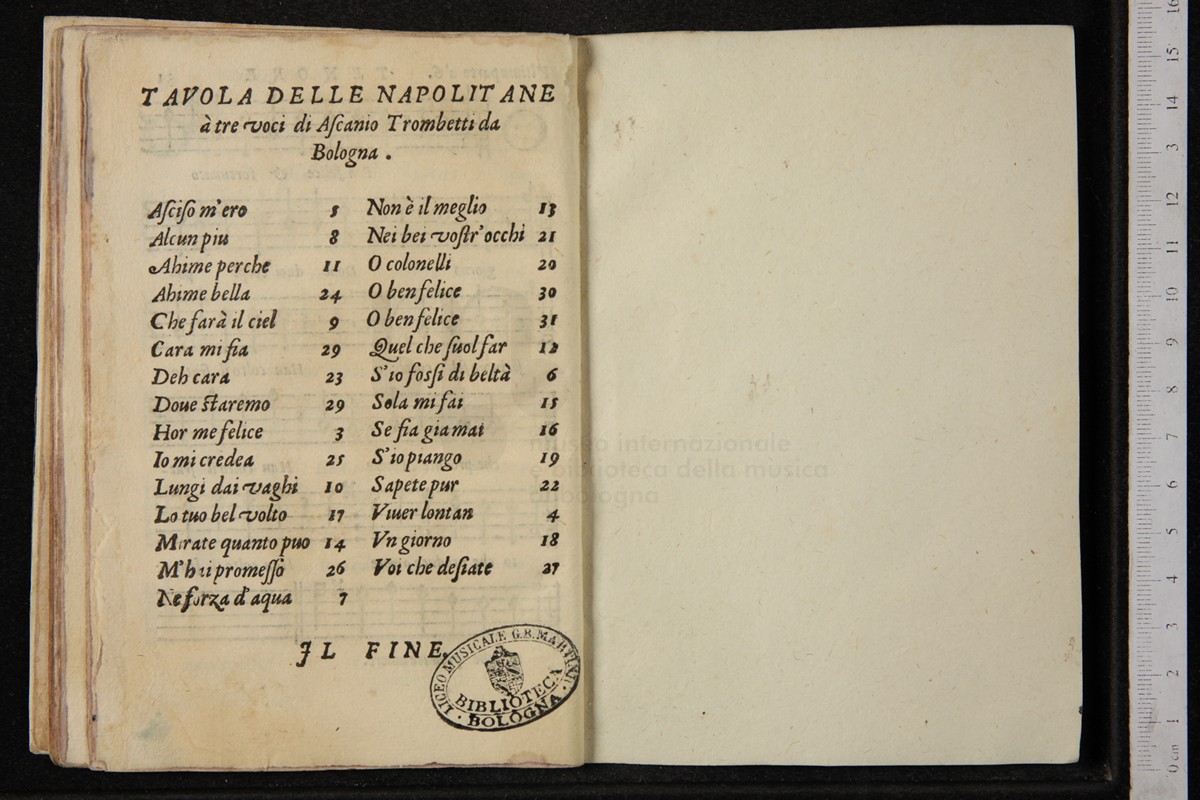 TAVOLA DELLE NAPOLITANE
à tre voci di Aſcanio Trombetti da
Bologna .
Aſciſo m'ero 5
Alcun piu 8
Ahime perche 11
Ahime bella 24
Che farà il ciel 9
Cara mi fia 29
Deh cara 23
Doue ſtaremo 29
Hor me felice 3
Io mi credea 25
Lungi dai vaghi 10
Lo tuo bel volto 17
Mirate quanto puo 14
M'hai promeſſo 26
Ne forza d'aqua 7
Non è il meglio 13
Nei bei voſtr'occhi 21
O colonelli 20
O ben felice 30
O ben felice 31
Quel che ſuol far 12
S'io foſſi di beltà 6
Sola mi fai 15
Se fia gia mai 16
S'io piango 19
Sapete pur 22
Viuer lontan 4
Vn giorno 18
Voi che deſiate 27
IL FINE.
LICEO MUSICALE G.B. MARTINI
BIBLIOTECA
BOLOGNA
museo internazionale
e biblioteca della musica
di bologna
0 cm 1 2 3 4 5 6 7 8 9 10 11 12 3 14 15 16